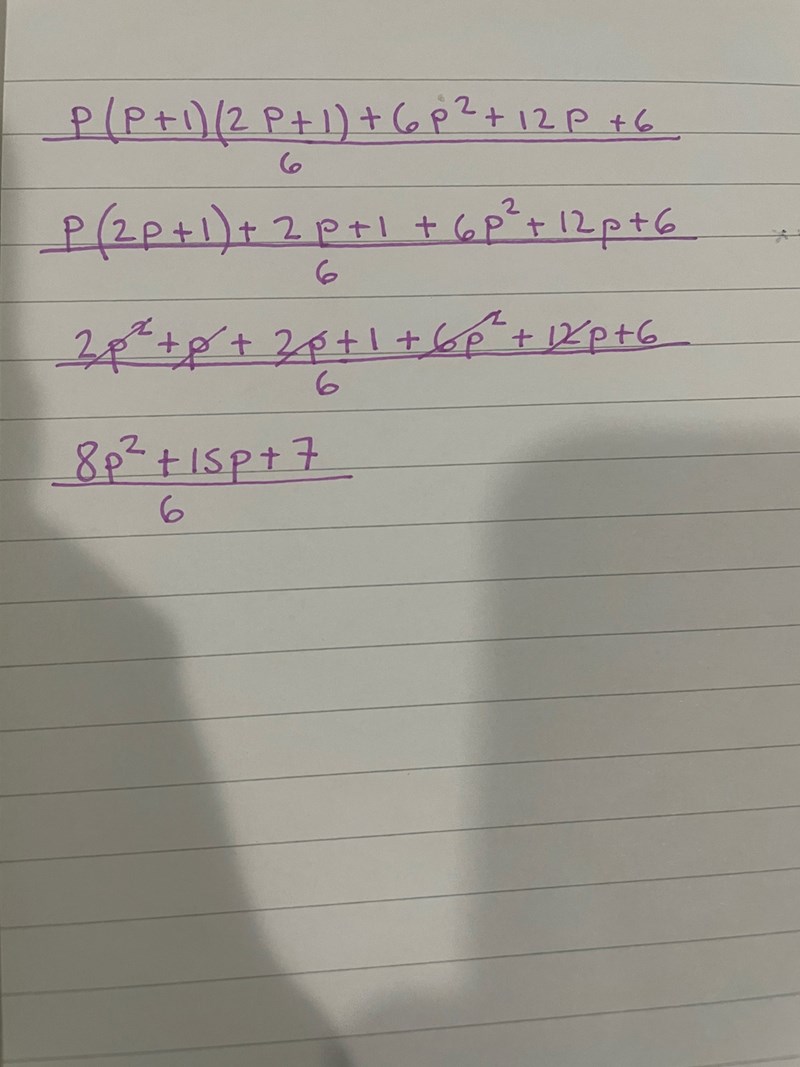 P(P+1)(2P+1)+6p²+12P+6
6
P(2p+1)+2p+1+6p²+12p+6
6
2p²+p+2p+1+6p²+12p+6
6
8p²+15p+7
6